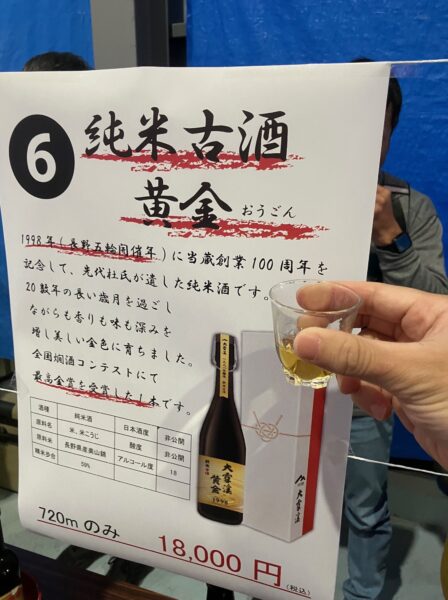 6
純米古酒
黄金 おうごん
1998年(長野五輪開催年)に当蔵創業100周年を
記念して、先代杜氏が遺した純米酒です。
20数年の長い歳月を過ごし
ながらも香りも味も深みを
増し美しい金色に育ちました。
全国燗酒コンテストにて
最高金賞を受賞した1本です。
酒種 純米酒 日本酒度 非公開
原料名 米、米こうじ 酸度 非公開
原料米 長野県産美山錦 アルコール度 18
精米歩合 59%
大雪渓
黄金
1998
大雪渓
720mのみ
18,000円
(税込)